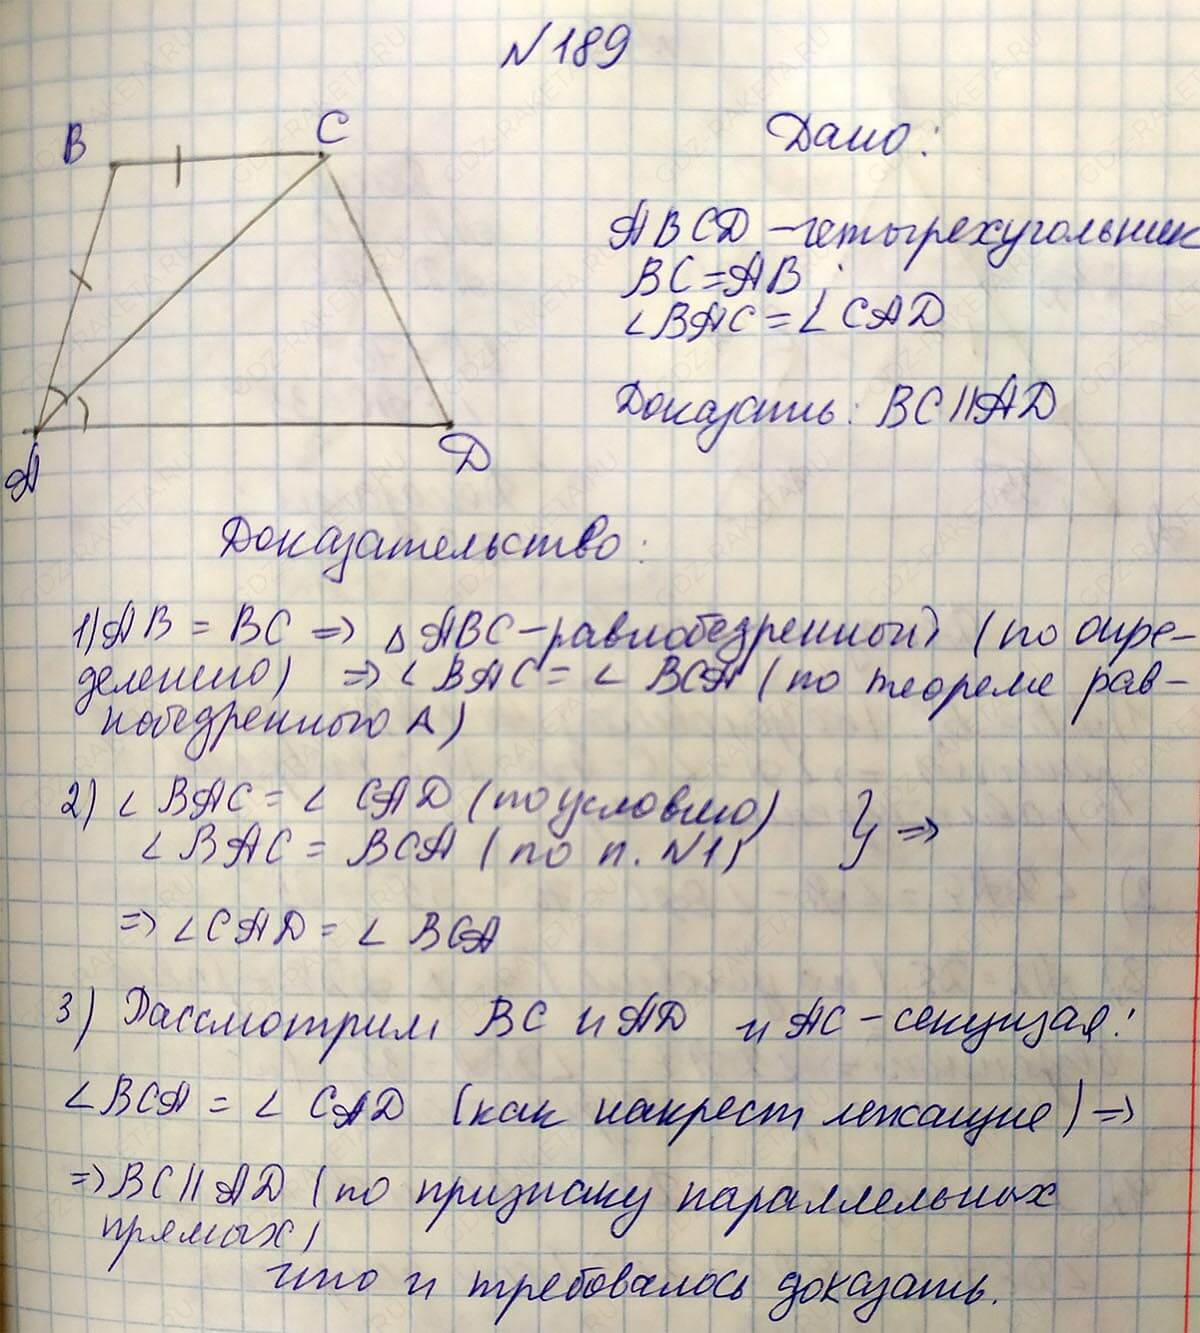 №189
B
C
A
D
Дано:
ABCD – четырехугольник
BC=AB;
∠BAC=∠CAD
Доказать: BC||AD
Доказательство:
1) AB = BC => △ABC-равнобедренный (по опре-
делению) => ∠BAC = ∠BCA (по теореме рав-
нобедренного △)
2) ∠BAC = ∠CAD (по условию) } =>
∠BAC = BCA (по п. №1)
=> ∠CAD = ∠BCA
3) Рассмотрим BC и AD и AC-секущая:
∠BCA = ∠CAD (как накрест лежащие) =>
=> BC||AD (по признаку параллельных
прямых)
что и требовалось доказать.